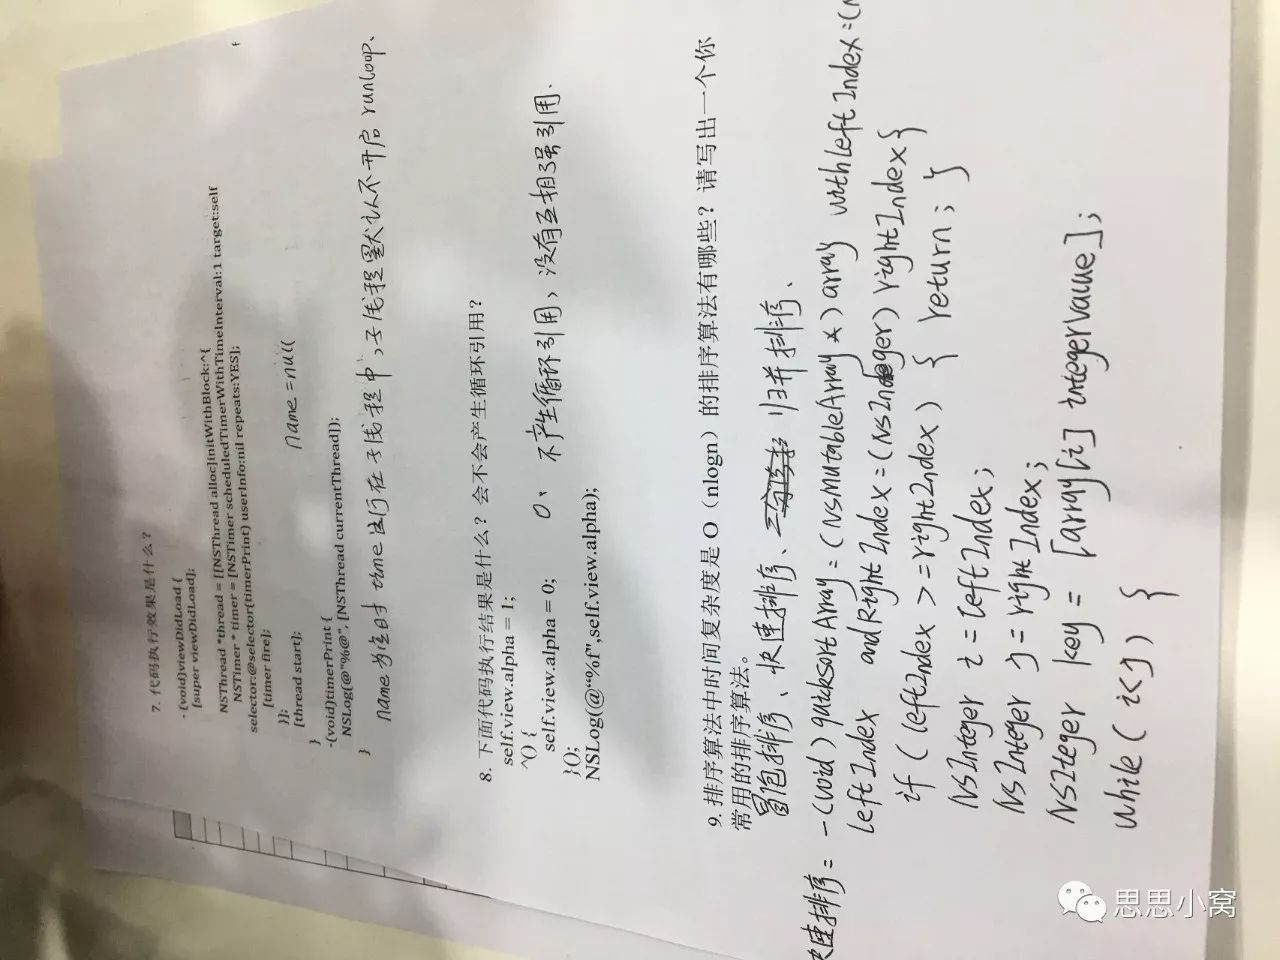 7. 代码执行效果是什么？
- (void)viewDidLoad {
[super viewDidLoad];
NSThread *thread = [[NSThread alloc]initWithBlock:^{
NSTimer * timer = [NSTimer scheduledTimerWithTimeInterval:1 target:self
selector:@selector(timerPrint) userInfo:nil repeats:YES];
[timer fire];
name=null
}];
[thread start];
}
-(void)timerPrint {
NSLog(@"%@", [NSThread currentThread]);
}
name为空时 time 运行在子线程中,子线程默认不开启 runloop、
8. 下面代码执行结果是什么？会不会产生循环引用？
self.view.alpha = 1;
^() {
self.view.alpha = 0;
}();
NSLog(@"%f",self.view.alpha);
0、 不产生循环引用, 没有互相强引用、
9. 排序算法中时间复杂度是 O（nlogn）的排序算法有哪些？请写出一个你
常用的排序算法。
冒泡排序、快速排序、归并排序、
快速排序= -(void)quicksortArray=(NSMutableArray *)array withleftIndex=(N
leftIndex andRightIndex=(NSInteger)rightIndex{
if (leftIndex >=rightIndex) { return; }
NSInteger i=leftIndex;
NSInteger j=rightIndex;
NSIteger key = [array[i] integerValue];
while(i<j) {
思思小窝